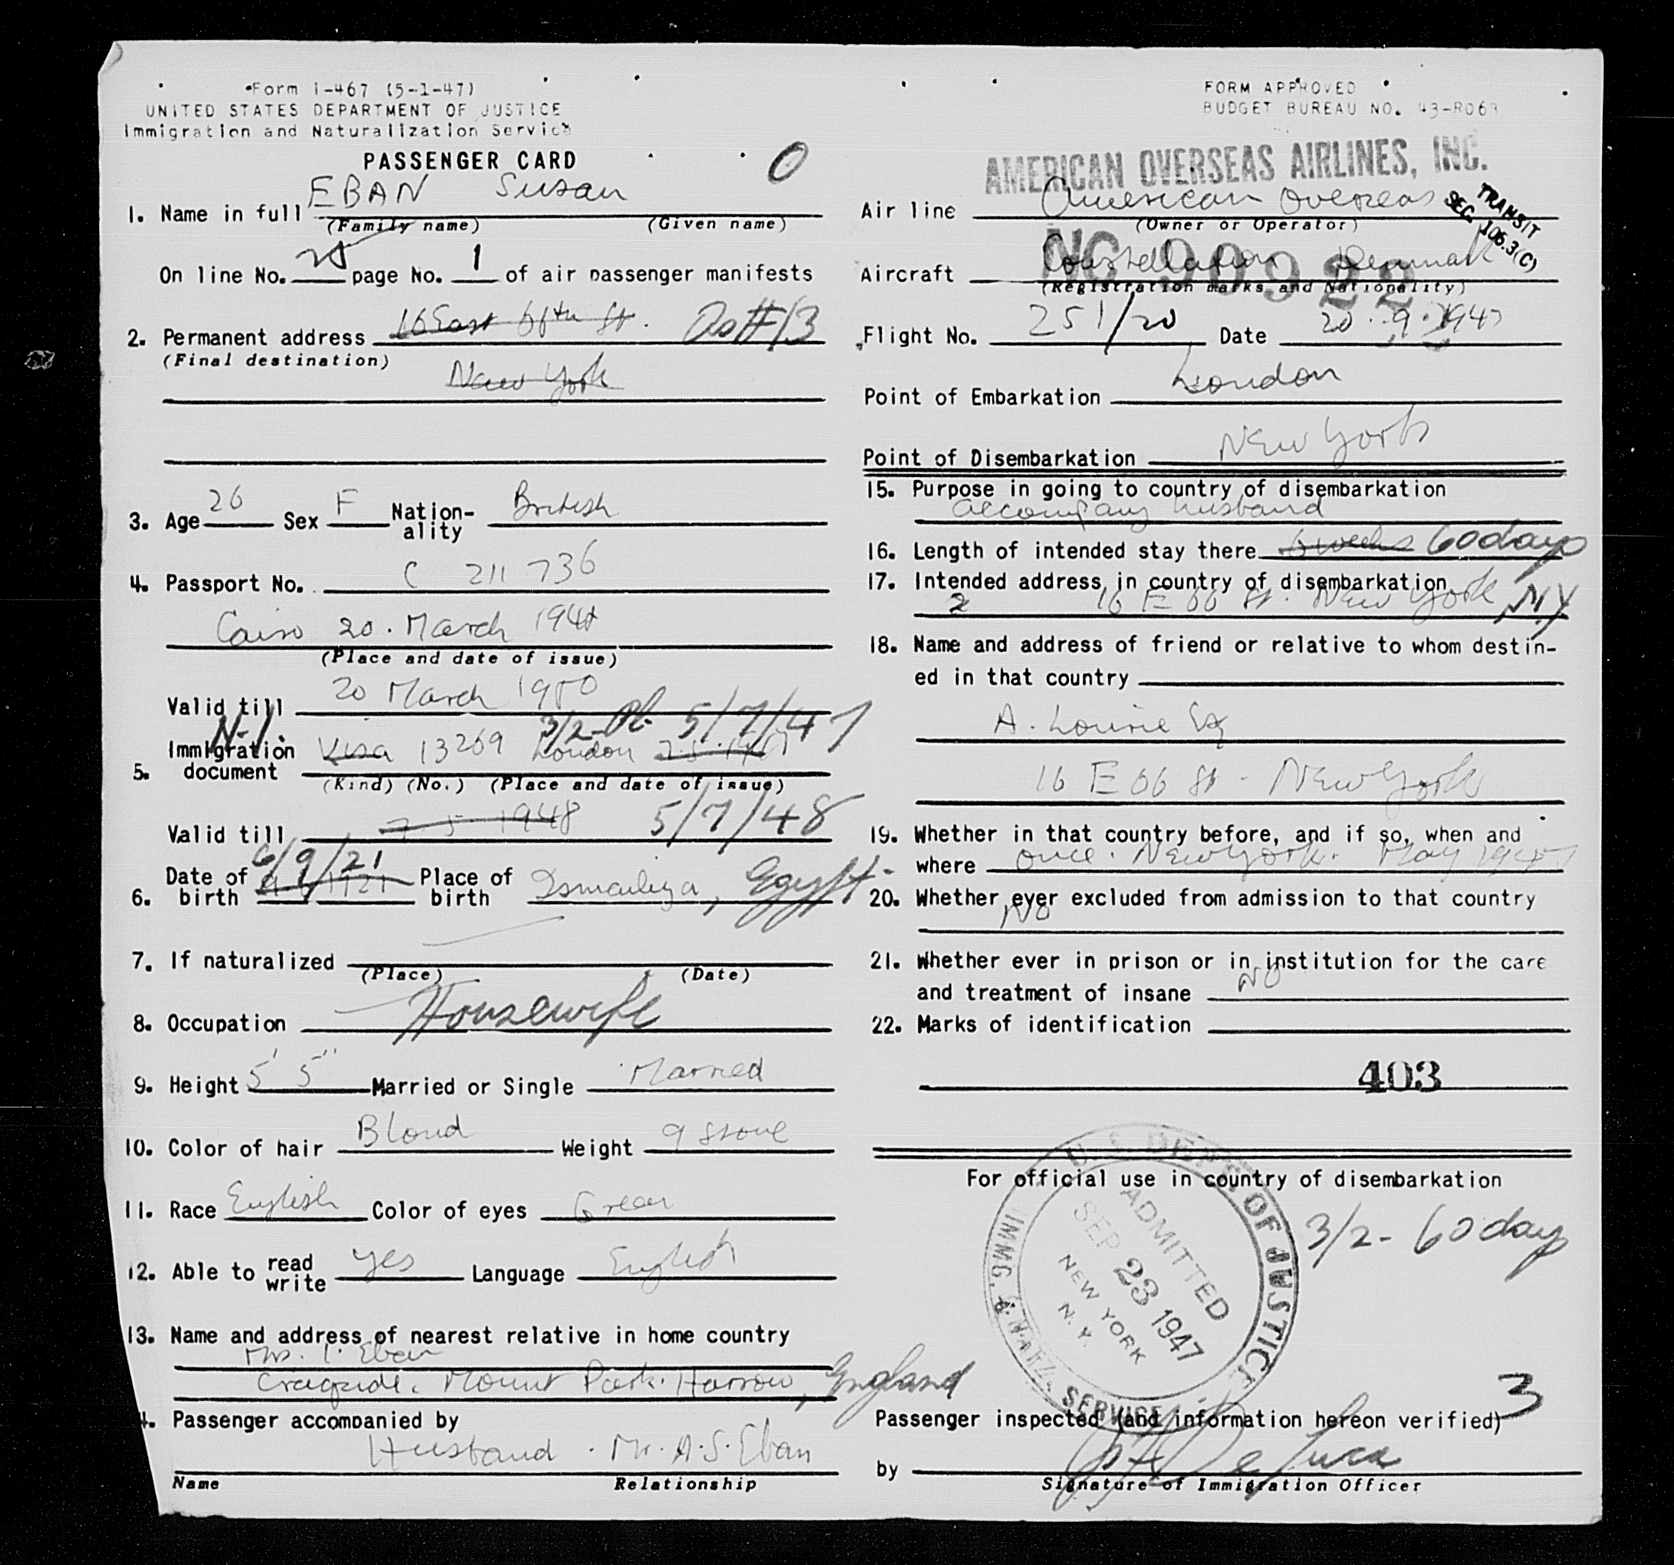 Form I-467 (5-1-47)
UNITED STATES DEPARTMENT OF JUSTICE
Immigration and Naturalization Service
PASSENGER CARD
O
1. Name in full EBAN Susan
(Family name) (Given name)
On line No. page No. 1 of air passenger manifests
2. Permanent address 16 East 66th St. As #13
(Final destination)
New York
3. Age 26 Sex F Nation-ality British
4. Passport No. C 211736
Cairo 20. March 194
(Place and date of issue)
Valid till 20 March 1950
N-1. 3/2-Pl 5/7/47
5. Immigration document Visa 13269 London
(Kind) (No.) (Place and date of issue)
Valid till 7 5 1948 5/7/48
6. Date of birth 6/9/21 Place of birth Ismailiya, Egypt.
7. If naturalized
(Place) (Date)
8. Occupation Housewife
9. Height 5' 5" Married or Single Married
10. Color of hair Blond Weight 9 stone
11. Race English Color of eyes Green
12. Able to read write yes Language English
13. Name and address of nearest relative in home country
Mrs. I. Eban
Mount Park. Harrow, England
4. Passenger accompanied by
Husband. Mr. A.S. Eban
Name Relationship
FORM APPROVED
BUDGET BUREAU NO. 43-R063
AMERICAN OVERSEAS AIRLINES, INC.
Air line American Overseas
(Owner or Operator)
TRANSIT
SEC. 106.3(C)
NC 90922
Aircraft Constellation Denmark
(Registration marks and Nationality)
Flight No. 251/20 Date 20.9.1947
Point of Embarkation London
Point of Disembarkation New York
15. Purpose in going to country of disembarkation
accompany husband
16. Length of intended stay there 6 weeks 60 days
17. Intended address in country of disembarkation
2 16 E 66 St. New York NY
18. Name and address of friend or relative to whom destin-
ed in that country
A. Lourie Esq
16 E 66 St - New York
19. Whether in that country before, and if so, when and
where once. New York. May 1947
20. Whether ever excluded from admission to that country
No
21. Whether ever in prison or in institution for the care
and treatment of insane No
22. Marks of identification
403
For official use in country of disembarkation
3/2 - 60 days
U. S. DEPT. OF JUSTICE
IMMG. & NATZ. SERVICE
ADMITTED
SEP 23 1947
NEW YORK
N. Y.
3
Passenger inspected (and information hereon verified)
by De Luca
Signature of Immigration Officer